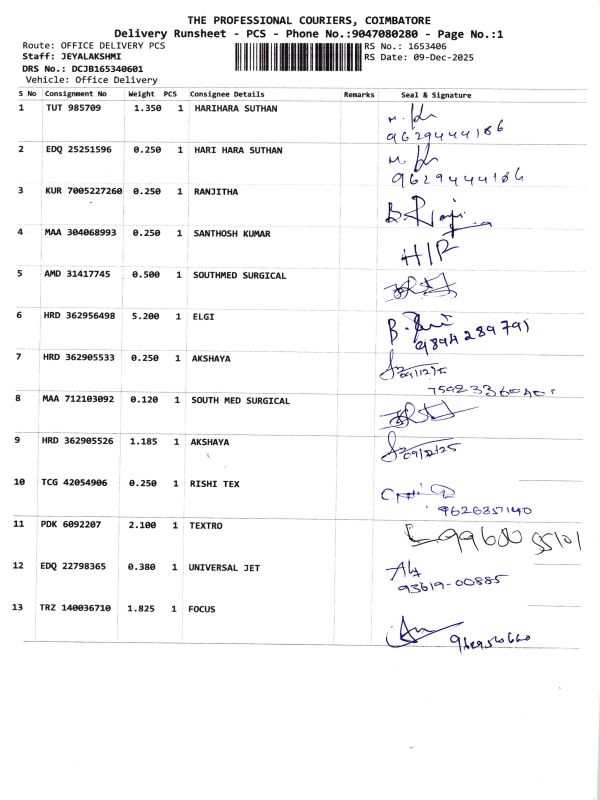 THE PROFESSIONAL COURIERS, COIMBATORE
Delivery Runsheet - PCS - Phone No.:9047080280 - Page No.:1
Route: OFFICE DELIVERY PCS RS No.: 1653406
Staff: JEYALAKSHMI RS Date: 09-Dec-2025
DRS No.: DCJB165340601
Vehicle: Office Delivery
S No Consignment No Weight PCS Consignee Details Remarks Seal & Signature
1 TUT 985709 1.350 1 HARIHARA SUTHAN
9629444186
2 EDQ 25251596 0.250 1 HARI HARA SUTHAN
9629444186
3 KUR 7005227260 0.250 1 RANJITHA
4 MAA 304068993 0.250 1 SANTHOSH KUMAR
5 AMD 31417745 0.500 1 SOUTHMED SURGICAL
6 HRD 362956498 5.200 1 ELGI
9894289791
7 HRD 362905533 0.250 1 AKSHAYA
09/12/25
8 MAA 712103092 0.120 1 SOUTH MED SURGICAL
9 HRD 362905526 1.185 1 AKSHAYA
09/12/25
10 TCG 42054906 0.250 1 RISHI TEX
9626857140
11 PDK 6092207 2.100 1 TEXTRO
12 EDQ 22798365 0.380 1 UNIVERSAL JET
93619-00885
13 TRZ 140036710 1.825 1 FOCUS